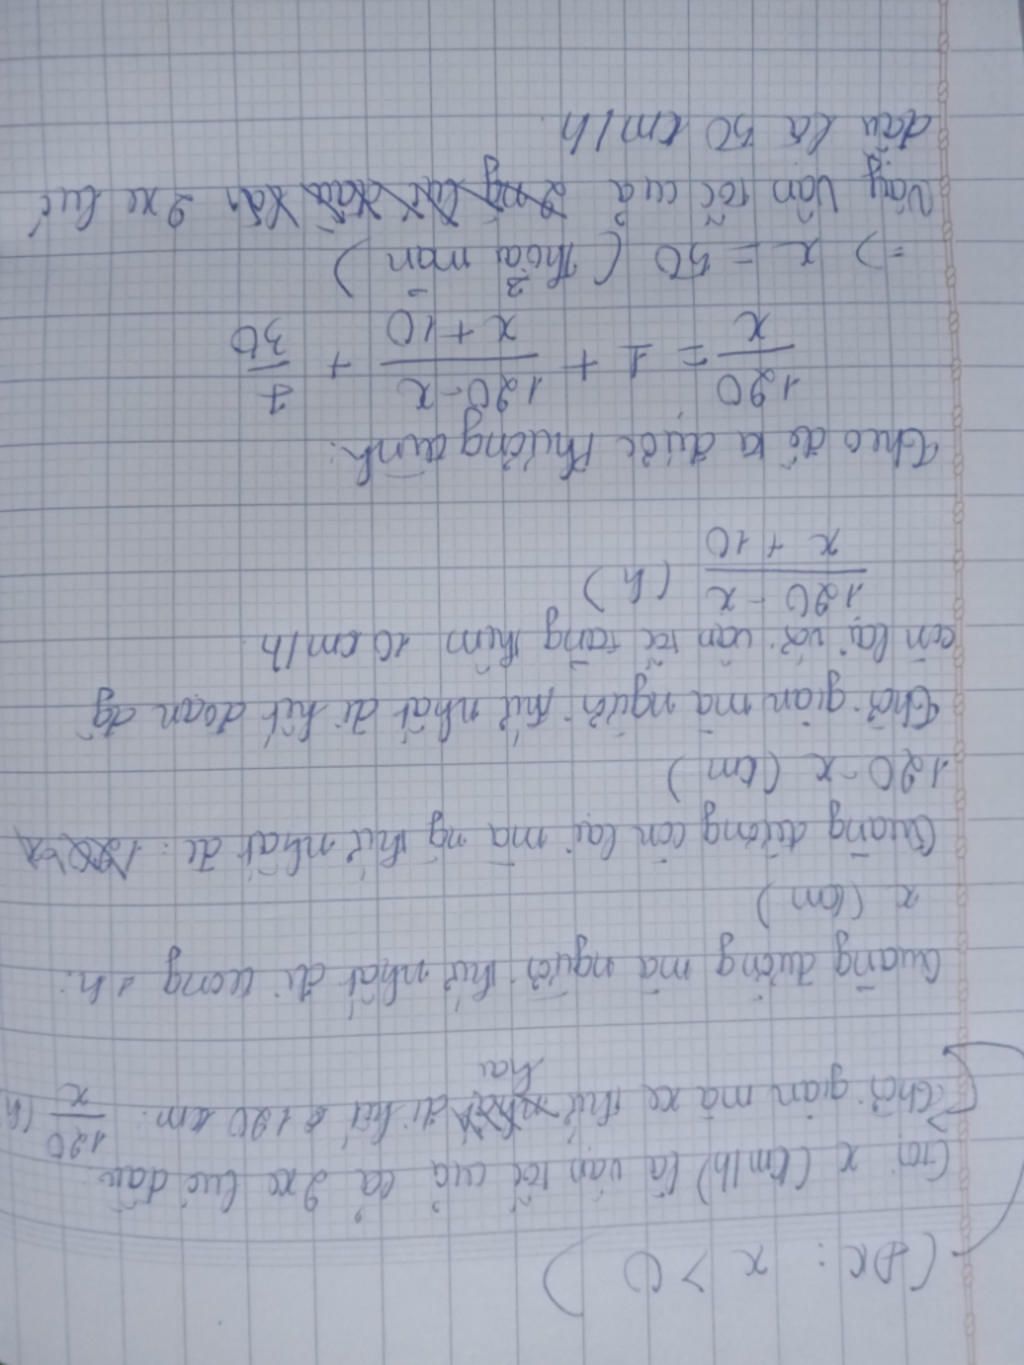 (ĐK: x > 0)
Gọi x (km/h) là vận tốc của cả 2 xe lúc đầu
Thời gian mà xe thứ hai đi hết 120 km: 120/x (h)
Quãng đường mà người thứ nhất đi trong 1h:
x (km)
Quãng đường còn lại mà ng thứ nhất đi:
120-x (km)
Thời gian mà người thứ nhất đi hết đoạn đg
còn lại với vận tốc tăng thêm 10 km/h
120-x/x+10 (h)
Theo đề ta được phương trình:
120/x = 1 + 120-x/x+10 + /30
=> x = 50 (thỏa mãn)
Vậy vận tốc của 2 xe lúc
đầu là 50 km/h.